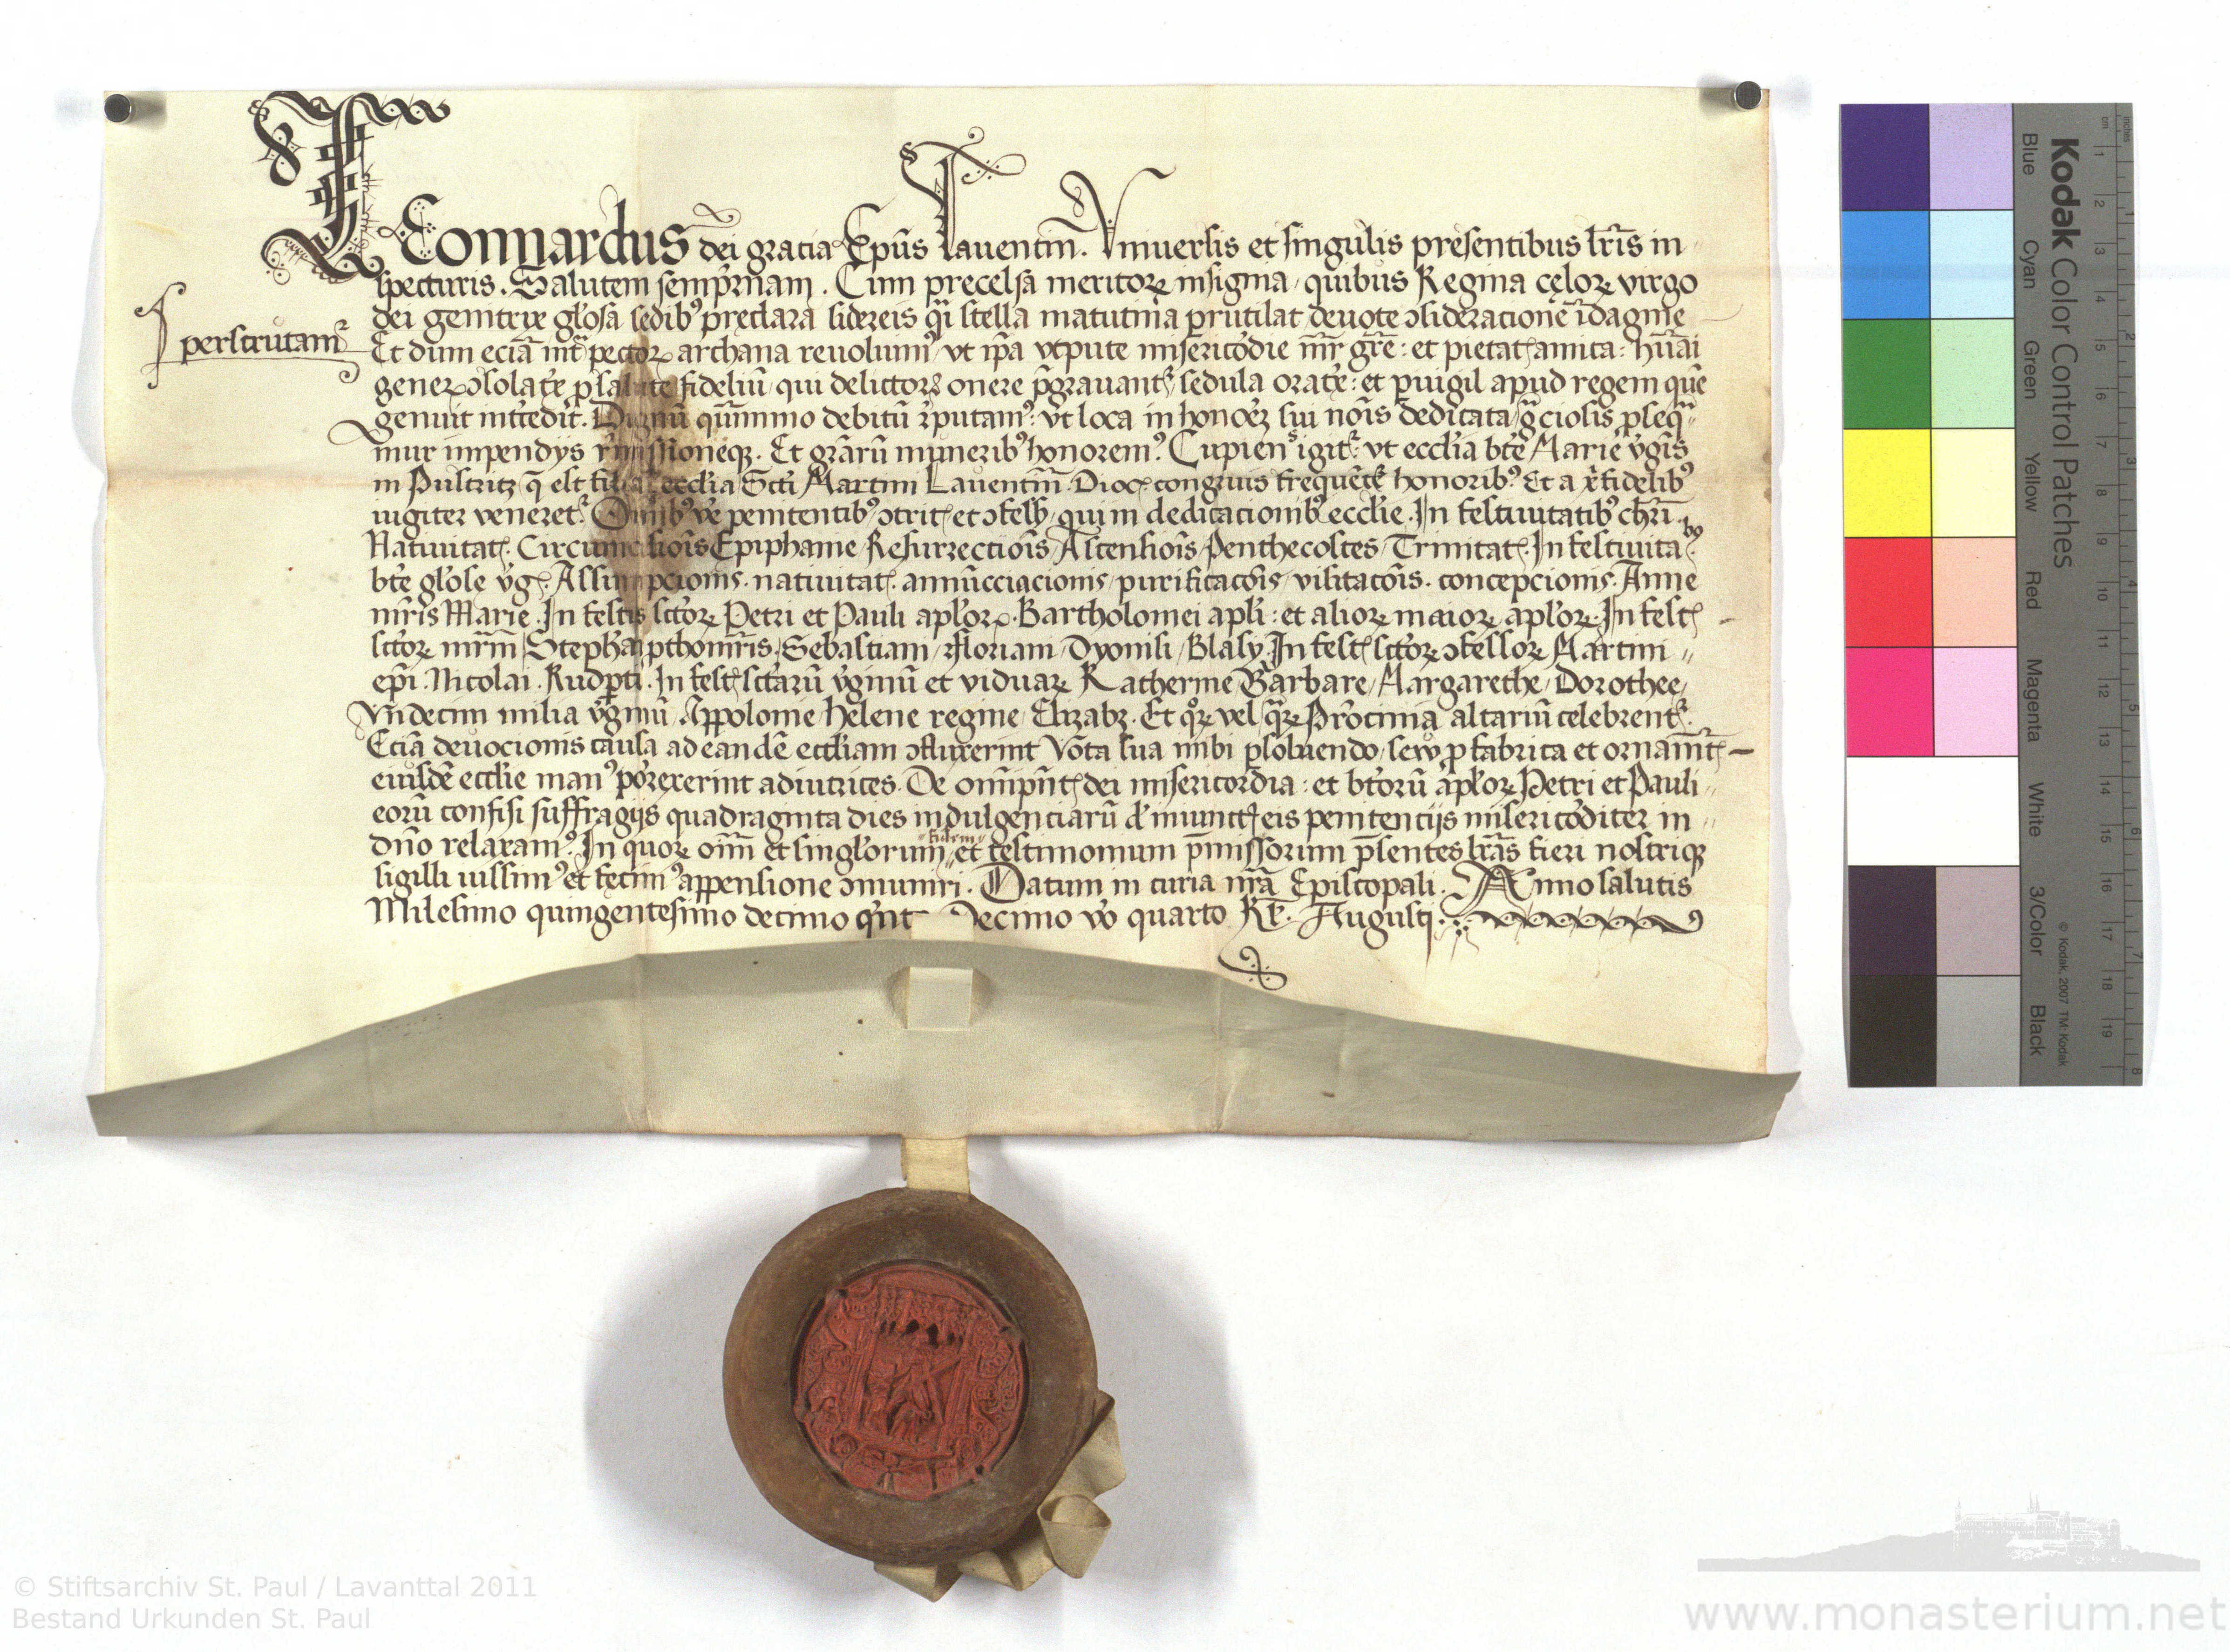 Leonnardus dei gracia Ep̃us Lauentin̄. Vniuersis et singulis presentibus l̃ris in
specturis. Salutem semp̃rnam. Cum precelsa meritoꝝ insignia, quibus Regina cęloꝝ virgo
dei genitrix gl̃osa sedibꝰ pręclara sidereis q̃i stella matutina prutilat deuote ꝯsideracionē ĩdagine
perscrutamᷣ
Et dum eciā int̃ pectoꝝ archana reuolumꝰ vt ip̃a vtpute misericõdie mr̃ gr̃e: et pietatꝭ amica: hũai
generꝭ ꝯsolatᷣx p salute fideliū qui delictoꝝ onere p̃grauantᷣ sedula oratᷣx: et puigil apud regem quē
genuit int̃cedit. Dignū qũimmo debitū r̃putamꝰ: vt loca in honorē sui nõis dedicata g̃ciosis ꝓseq̃
mur impendys r̃missioneqꝫ. Et gr̃arū muneribꝰ honoremꝰ. Cupiens igitᷣ: vt eccl̃ia bt̃e Marie v̓gĩs
in Pultritz q̃ est filial̃ eccl̃ia Sct̃i Martini Lauentin̄ Dioc̃ congruis frequētetᷣ honoribꝰ: Et a xp̃ifidelibꝰ
iugiter veneretᷣ. Om̃ibꝰ v̓e penitentibꝰ ꝯtritꝭ et ꝯfess̃, qui in dedicacionibꝰ eccl̃ie. In festiuitatibꝰ chr̃i.
Natiuitatꝭ. Circumcisiõis Epiphanie, Resurrectiõis, Ascensiõis, Penthecostes, Trinitatꝭ. In festiuita bꝰ
bt̃e gl̃ose v̓gꝭ. Assumpcionis. natiuitatꝭ. annũcciacionis, purificacõis, visitacõis. concepcionis. Anne
mr̃is Marie. In festis sct̃oꝝ Petri et Pauli apl̃oꝝ. Bartholomei apl̃i: et alioꝝ maioꝝ apl̃oꝝ. In festꝭ
sct̃oꝝ mr̃m̄ Stephani pthomr̃is, Sebastiani, Floriani, Dyonisi, Blasy. In festꝭ sct̃oꝝ ꝯfessoꝝ Martini
ep̃i. Nicolai. Rudp̱ti. In festꝭ sct̃arū v̓ginū et viduaꝝ Katherine Barbare, Margarethe, Dorothee,
Vndecim milia v̓ginū, Appolonie, helene regine, Elizabꝫ. Et qᷣoꝝ vel q̃aꝝ Prõcinia altariū celebrentᷣ.
Eciā deuocionis causa ad eandē eccl̃iam ꝯfluxerint Vota sua inibi ꝑsoluendo, sew ꝓ fabrica et ornamt̃ꝭ
eiusdē eccl̃ie manꝰ porrexerint adiutrices. De om̃ip̃ñtꝭ dei misericordia: et bt̃orū apl̃oꝝ Petri et Pauli
eorū confisi suffragijs quadraginta dies indulgenciarū d̓ iniunctꝭ eis penitencijs misericõditer in
dn̄o relaxamꝰ. In quoꝝ om̄m̄ et singl̃orum fidem et testimonium p̄missorum p̄sentes l̃ras fieri nostriqꝫ
sigilli iussimꝰ et fecimꝰ appensione ꝯmuniri. Datum in curia nr̃a Episcopali. Anno salutis
Milesimo quingentesimo decimo q̓nt Decimo vo quarto Kl̃. Augusti.
Kodak Color Control Patches
Blue Cyan Green Yellow Red Magenta White 3/Color Black
© Kodak, 2007 TM: Kodak
cm 1 2 3 4 5 6 7 8 9 10 11 12 13 14 15 16 17 18 19
inches 1 2 3 4 5 6 7 8
© Stiftsarchiv St. Paul / Lavanttal 2011
Bestand Urkunden St. Paul
www.monasterium.net